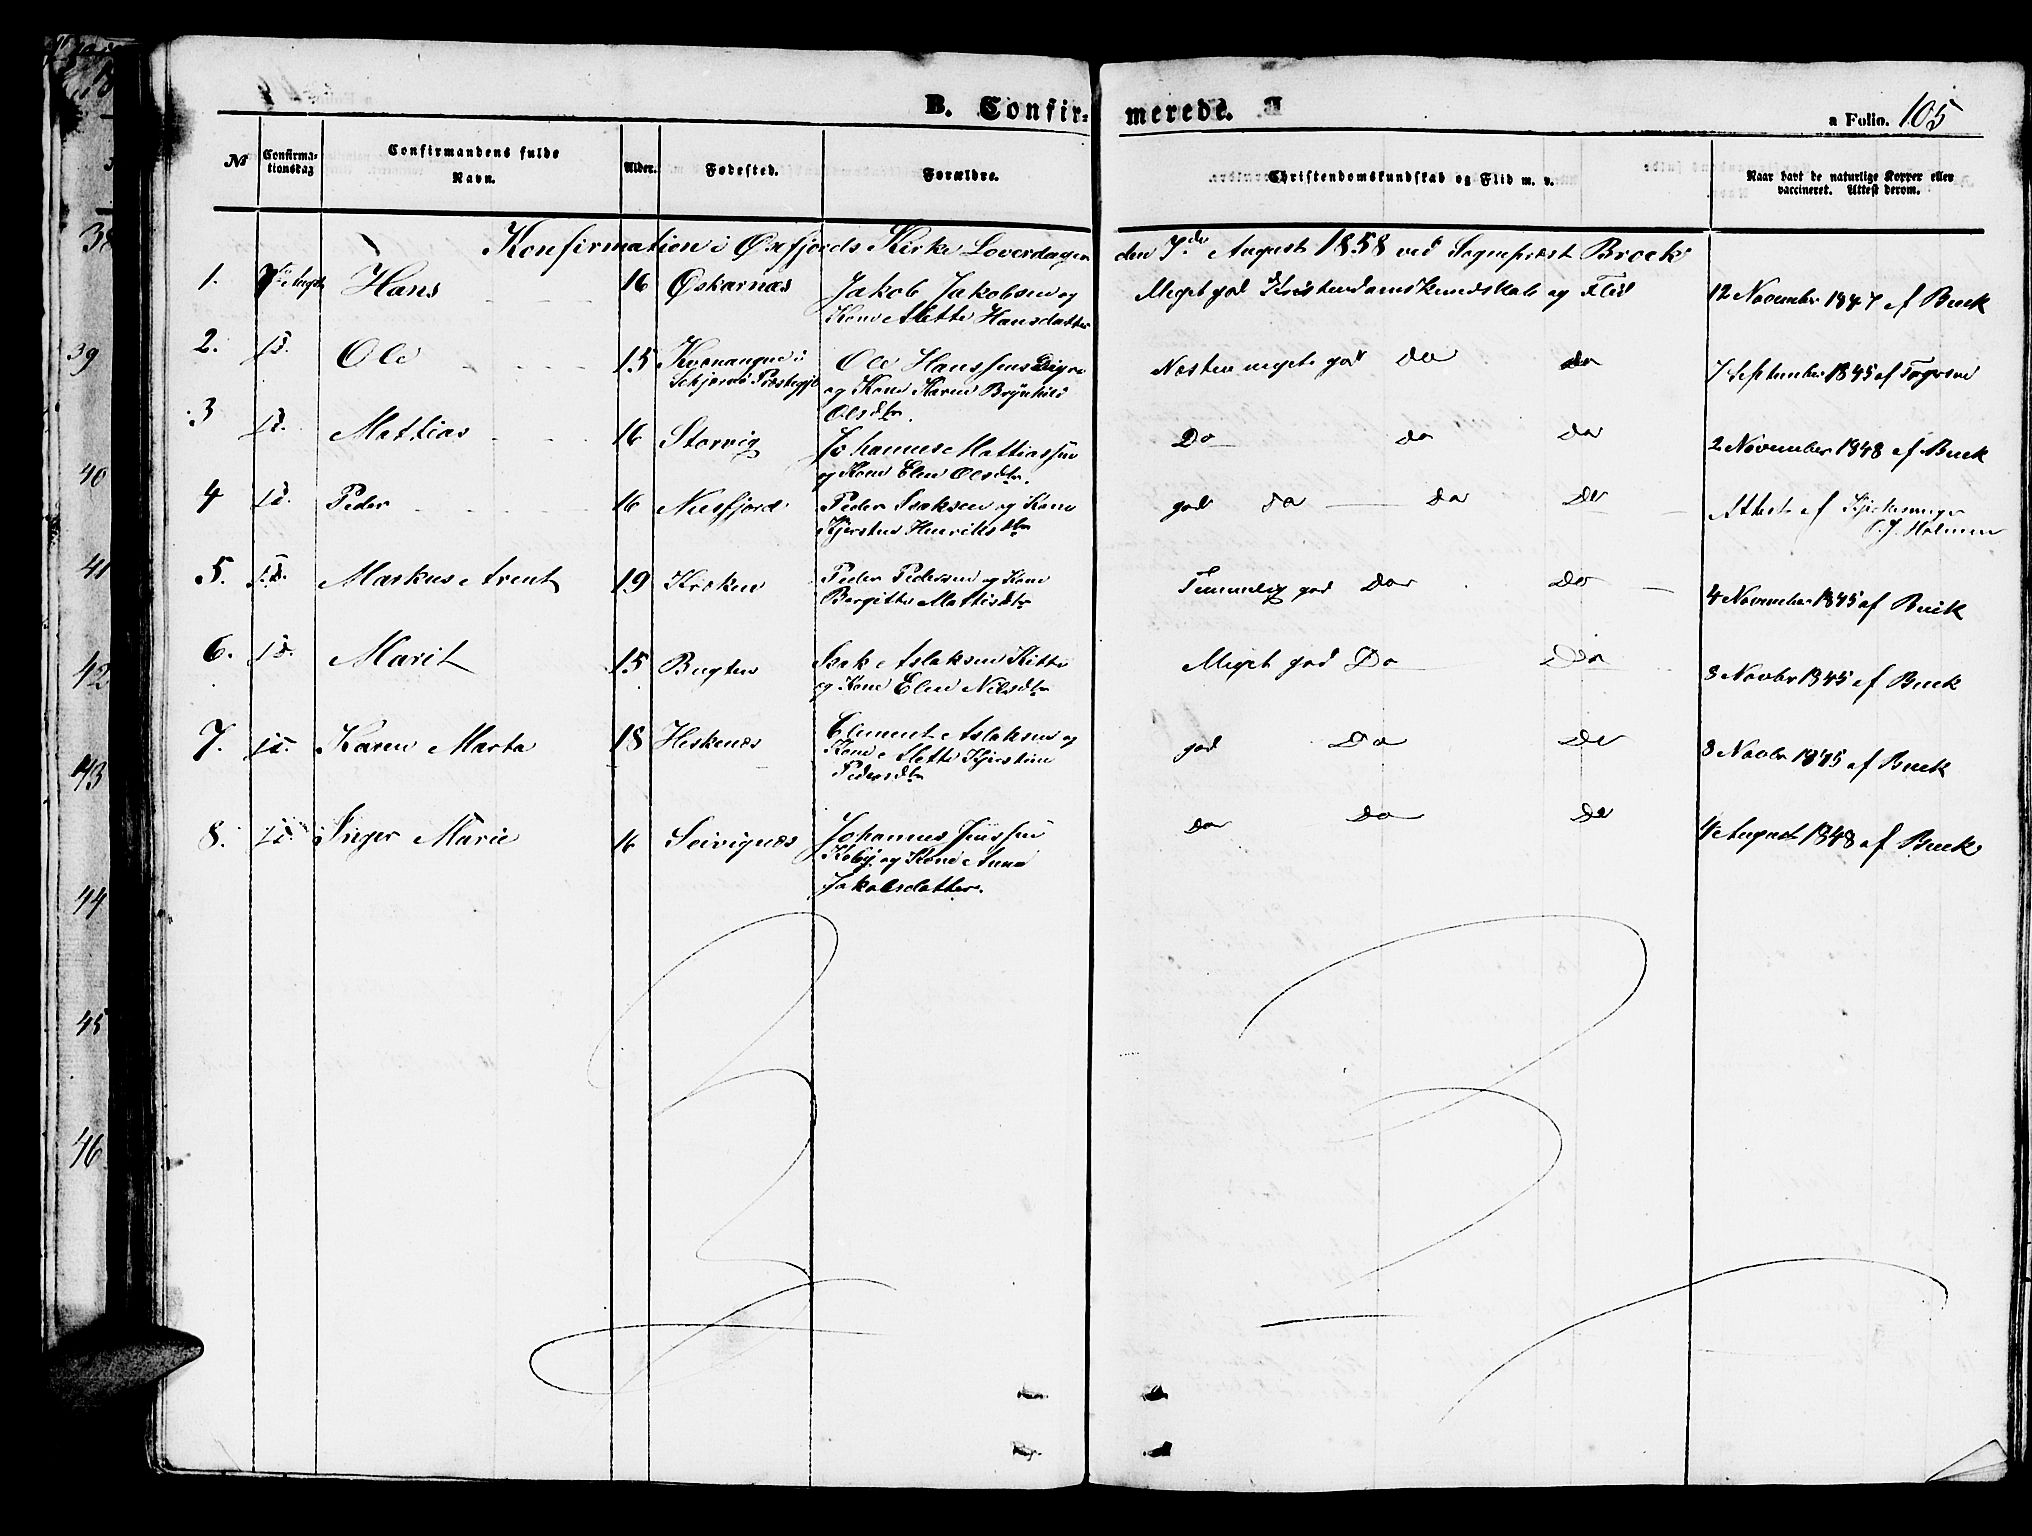 B. Confirmerede.
a Folio. 105
№ Confirmationsdag Confirmandens fulde Navn. Alder. Fødested. Forældre. Christendomskundskab og Flid m. v. Naar havt de naturlige Kopper eller vaccineret. Attest derom.
Konfirmation i Øxfjords Kirke Løverdagen den 7de August 1858 ved Sognepræst Brock
1. August Hans 16 Øskarnæs Jakob Jakobsen og Meget god Kristendomskundskab og Flid 12 November 1847 af Buck
Kone Alette Hansdatter
2. id. Ole 15 Kvænangne i Ole Hanssens Næsten meget god do do 7 September 1845 af
Skjervø Præstegjd og Kone Karen Brynhild
Olsdtr.
3 id. Mattias 16 Storvig Johannes Mattiassen Do do do 2 November 1848 af Buck
og Kone Elen Olsdtr.
4 id. Peder 16 Nusfjord Peder Isaksen og Kone god do do do Attest af
Kjersten Henriksdtr Holmen
5. id. Markus Arent 19 Kroken Peder Pedersen og Kone Temmelig god Do Do 4 November 1845 af Buck
Bergitte Mattisdtr
6. id. Marit 15 Bugten Isak Aslaksen Meget god Do Do 3 Novbr 1845 af Buck
og Kone Elen Nilsdtr
7. id. Karen Marta 18 Heskenæs Clement Aslaksen og god Do Do 3 Novbr 1845 af Buck
Kone Alette Kjerstine
Pedersdtr
8. id. Inger Marie 16 Seivignæs Johannes Jenssen do do do 4 August 1848 af Buck
Koby og Kone Anna
Jakobsdatter.
38
39
40
41
42
43
44
45
46